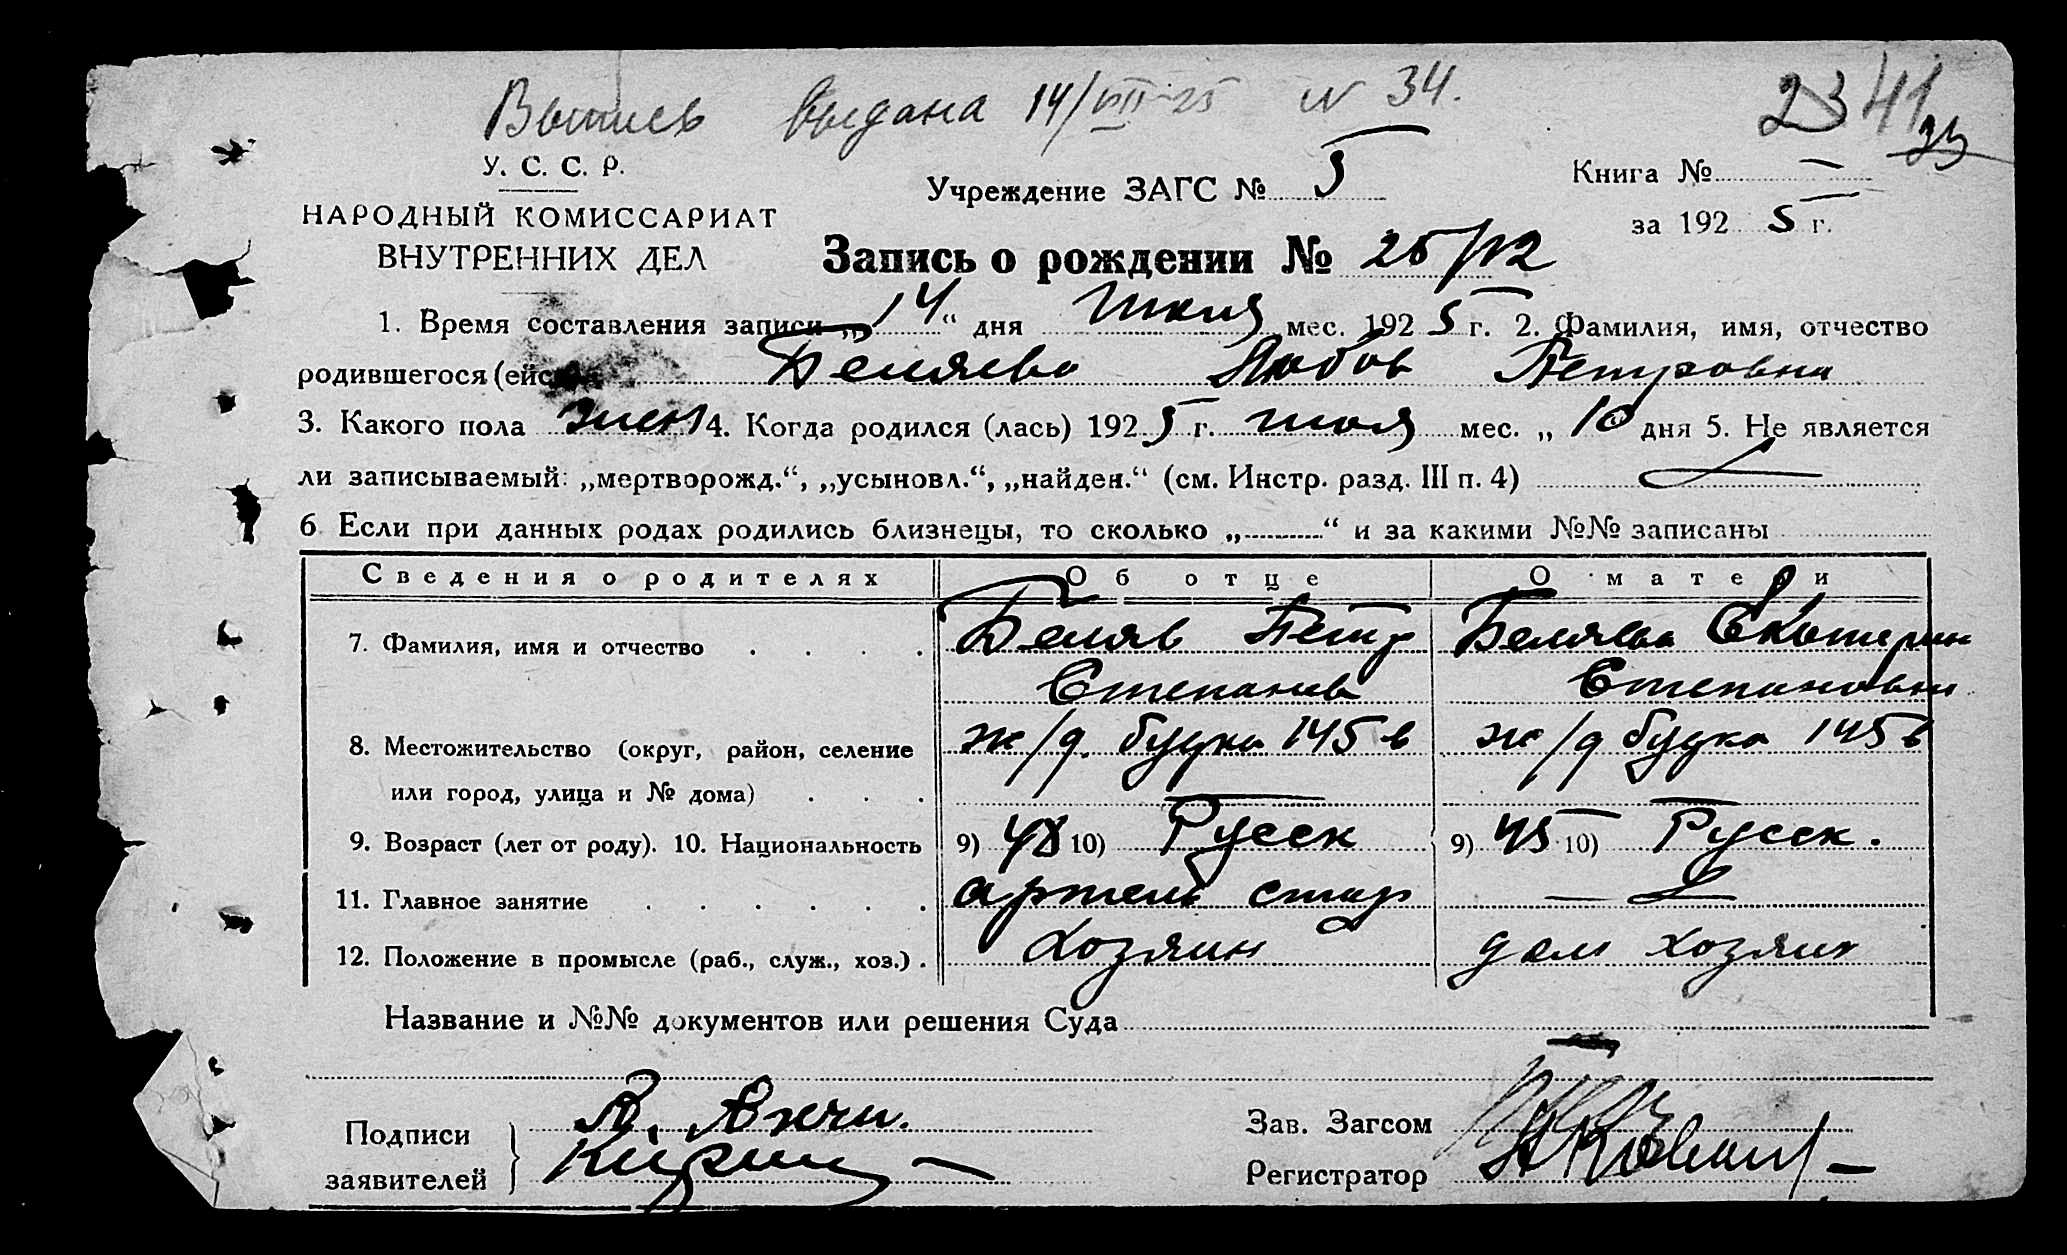 Выпись выдана 14/VII-25 N 34.
23 41
23
У. С. С. Р.
НАРОДНЫЙ КОМИССАРИАТ
ВНУТРЕННИХ ДЕЛ
Учреждение ЗАГС № 5
Книга № —
за 1925 г.
Запись о рождении № 25/12
1. Время составления записи „14“ дня Июля мес. 1925 г. 2. Фамилия, имя, отчество
родившегося (ейся) Беляева Любовь Петровна
3. Какого пола жен 4. Когда родился (лась) 1925 г. июля мес. „10 дня 5. Не является
ли записываемый: „мертворожд.“, „усыновл.“, „найден.“ (см. Инстр. разд. III п. 4)
6 Если при данных родах родились близнецы, то сколько „..........“ и за какими №№ записаны
Сведения о родителях Об отце О матери
7. Фамилия, имя и отчество . . . . Беляв Петр Беляева Екатерин
Степанов Степановн
8. Местожительство (округ, район, селение ж/д. будка 145 в ж/д будка 145 в
или город, улица и № дома) . . .
9. Возраст (лет от роду). 10. Национальность 9) 48 10) Русск 9) 45 10) Русск.
11. Главное занятие . . . . . . артели стар —
12. Положение в промысле (раб., служ., хоз.) . Хозяин дом хозяин
Название и №№ документов или решения Суда
Подписи
заявителей
Зав. Загсом
Регистратор